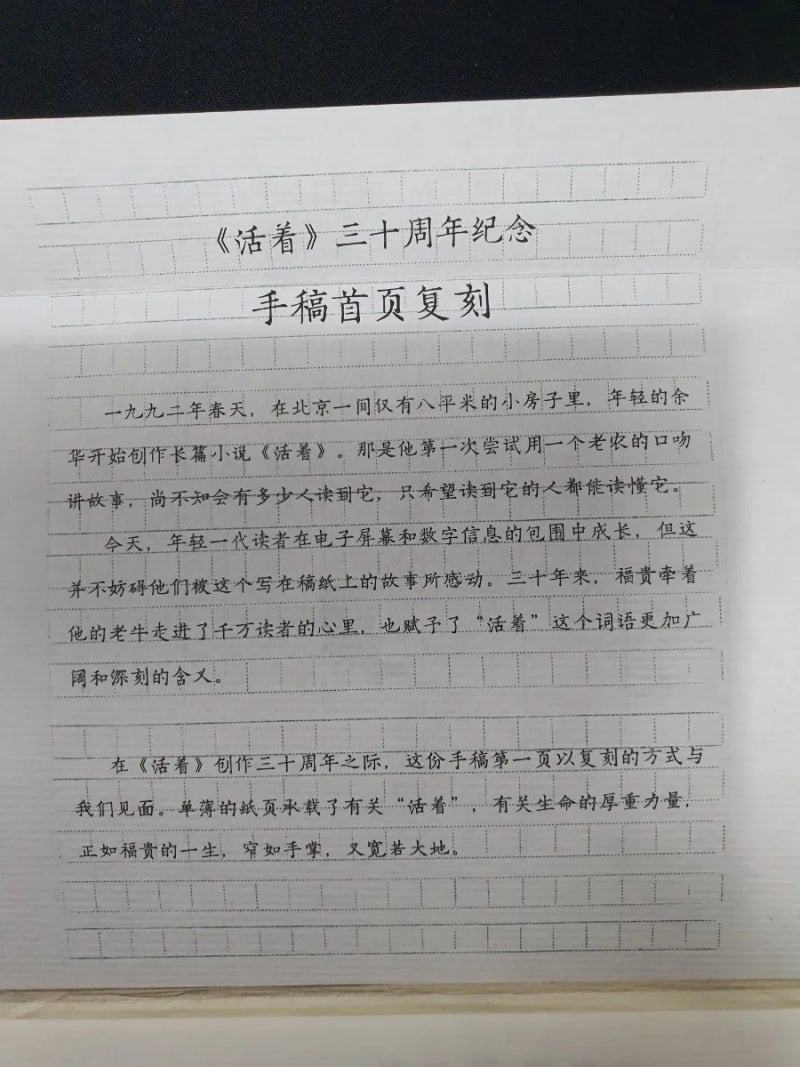 《活着》三十周年纪念
手稿首页复刻
一九九二年春天，在北京一间仅有八平米的小房子里，年轻的余
华开始创作长篇小说《活着》。那是他第一次尝试用一个老农的口吻
讲故事，尚不知会有多少人读到它，只希望读到它的人都能读懂它。
今天，年轻一代读者在电子屏幕和数字信息的包围中成长，但这
并不妨碍他们被这个写在稿纸上的故事所感动。三十年来，福贵牵着
他的老牛走进了千万读者的心里，也赋予了“活着”这个词语更加广
阔和深刻的含义。
在《活着》创作三十周年之际，这份手稿第一页以复刻的方式与
我们见面。单薄的纸页承载了有关“活着”，有关生命的厚重力量，
正如福贵的一生，窄如手掌，又宽若大地。